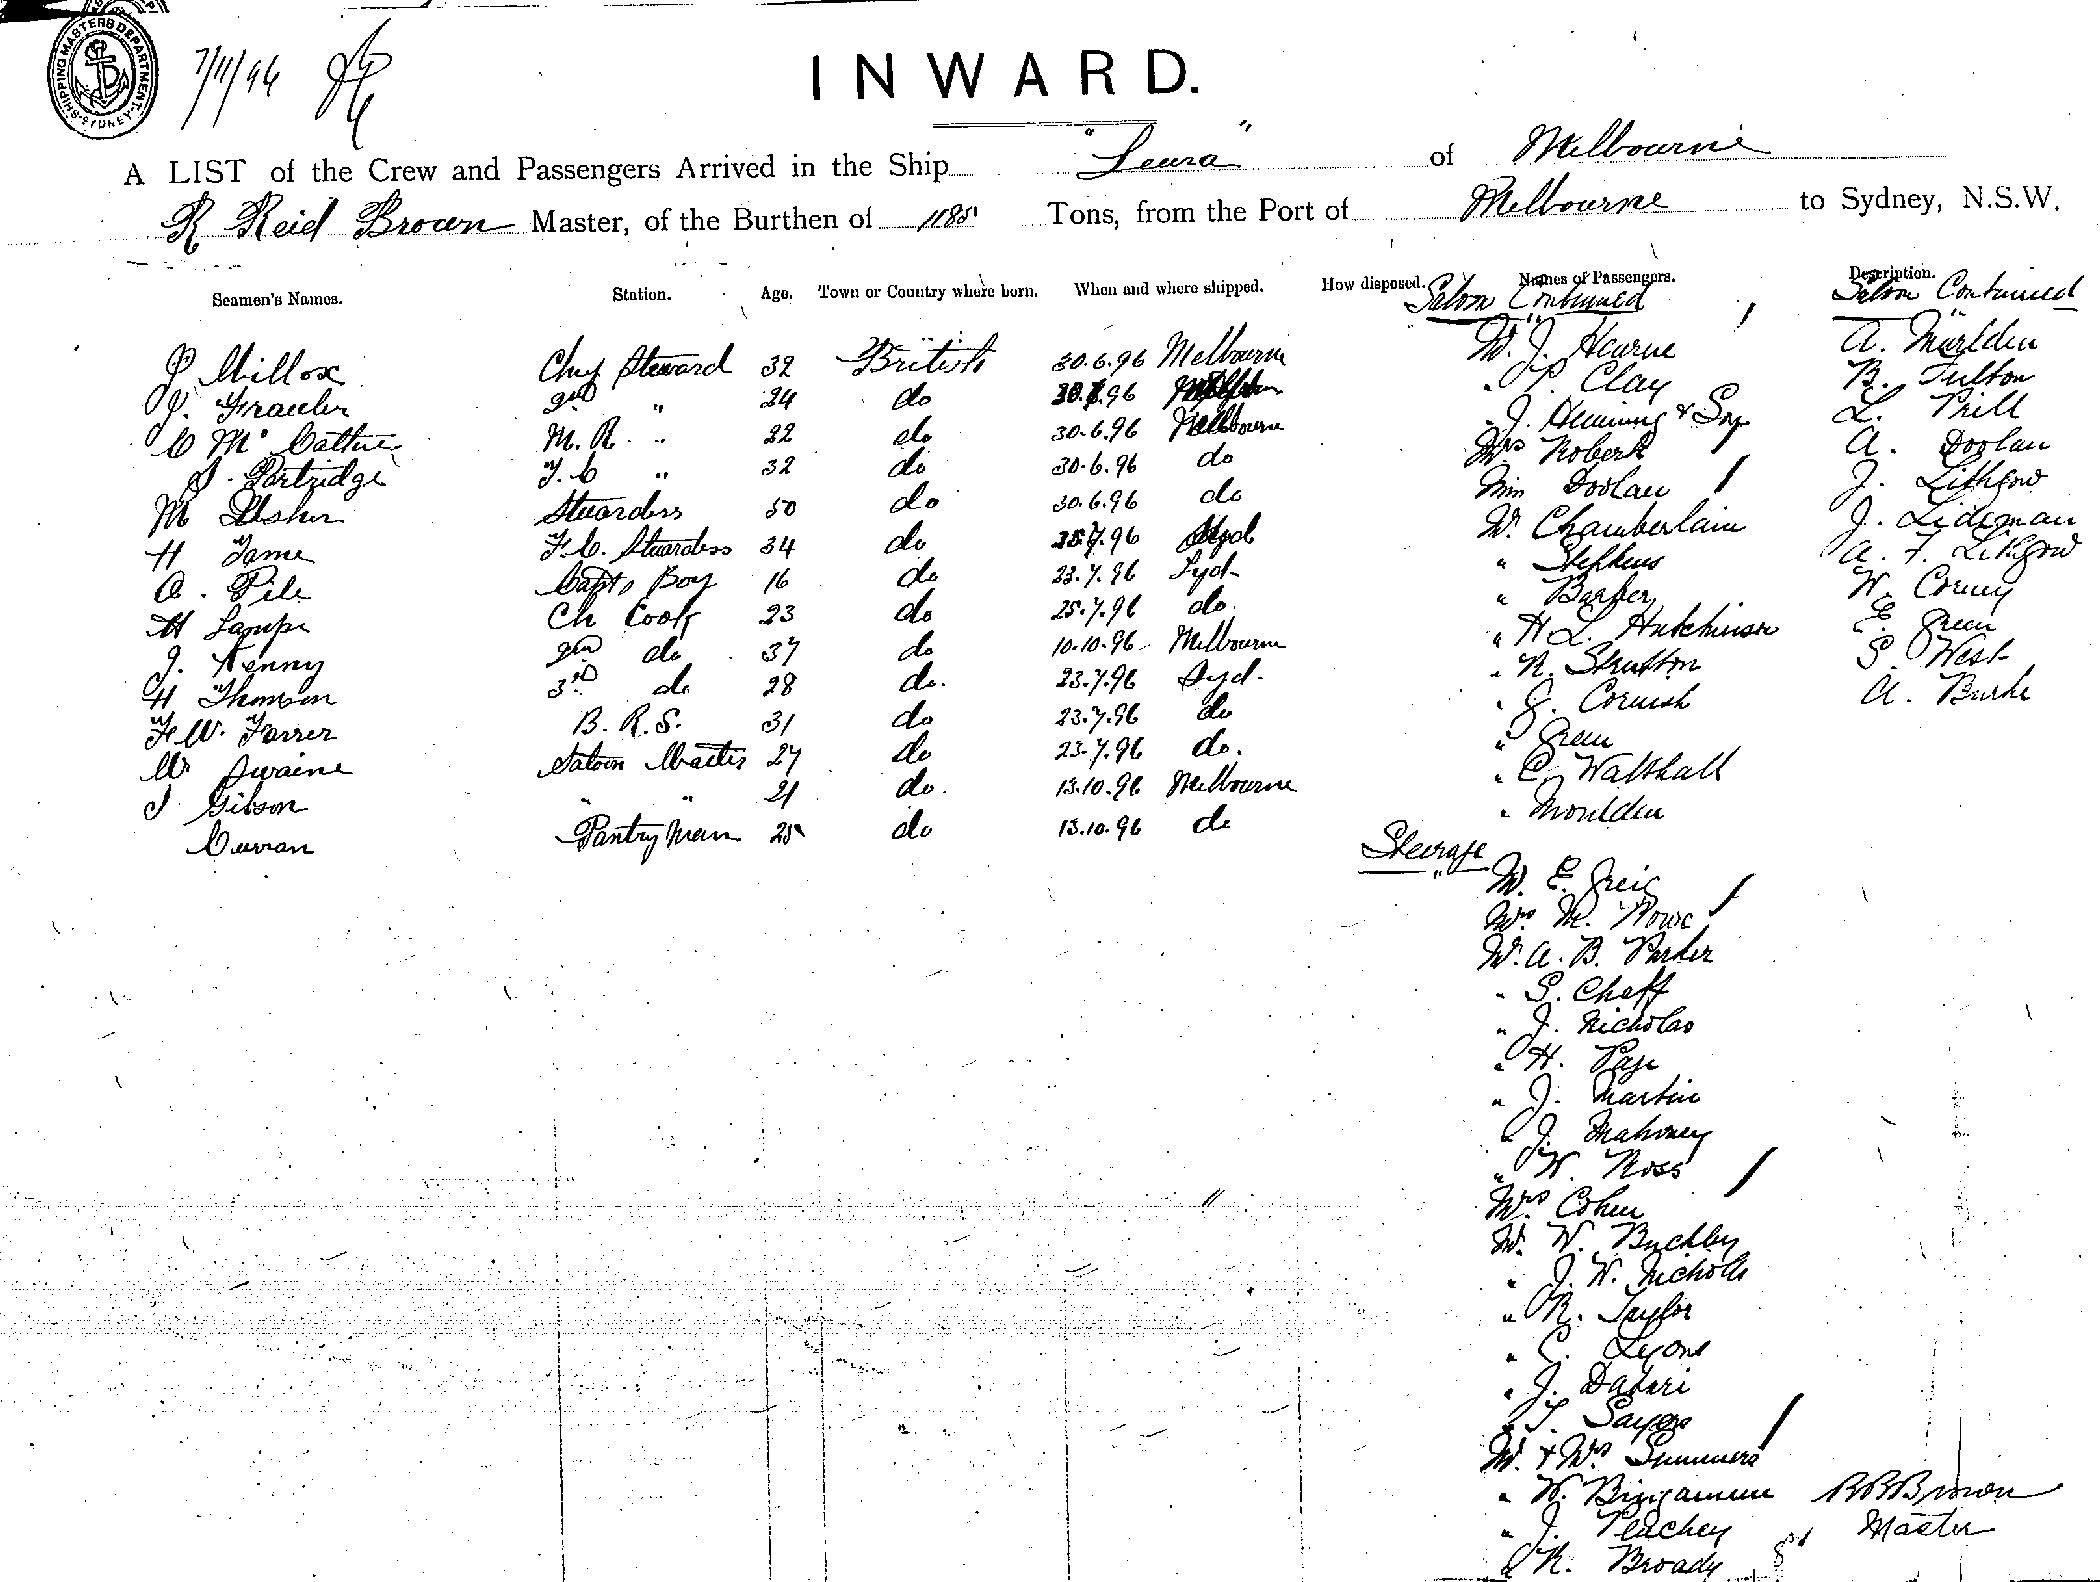 SHIPPING MASTERS DEPARTMENT SYDNEY
7/11/96
INWARD.
A LIST of the Crew and Passengers Arrived in the Ship "Leura" of Melbourne
R Reid Brown Master, of the Burthen of 1185 Tons, from the Port of Melbourne to Sydney, N.S.W.
Seamen's Names. Station. Age. Town or Country where born. When and where shipped. How disposed. Names of Passengers. Description.
J Millox Chief Steward 32 British 30.6.96 Melbourne
J. Frauler 2nd " 24 do 96
C McCathie M. R. " 22 do 30.6.96 Melbourne
J. Partridge F.C " 32 do 30.6.96 do
M Usher Stuardess 50 do 30.6.96 do
H Fame F.C. Stuardess 34 do 7.96 Syd
A. Pile Capts Boy 16 do 23.7.96 Syd.
H Lampe Ch Cook 23 do 25.7.96 do.
J. Kenny 2nd do 37 do 10.10.96 Melbourne
H Thomson 3rd do 28 do. 23.7.96 Syd.
F.W. Forrer B. R. S. 31 do 23.7.96 do
W Swaine Saloon Waiter 27 do 23.7.96 do.
J Gibson " " 21 do. 13.10.96 Melbourne
Curran Pantry Man 25 do 13.10.96 do
Salon Continued
Mr. J. Hearne
" P. Clay
" J. Henning & Son
Mrs Roberts
Miss Doolan
Mr. Chamberlain
" Stephens
" Barber
" H L. Hutchinson
" R. Strutton
" J. Cornish
" Green
" C. Walthall
" Moulden
Steerage
Mr. E. Greig
Mrs M. Rowe
Mr. A. B. Parker
" S. Chaff
" J. Nicholas
" H. Page
" J. Martin
" J. Mahoney
" W. Ross
Mrs Cohen
Mr. W. Buckley
" J. W. Nicholls
" R. Taylor
" C. Lyons
" J. Dabari
" T. Sayers
Mr. & Mrs Summers
" W. Bingamun
" J. Peachey
" R. Broady
Salon Continued
A. Marlden
B. Fulton
L. Prill
A. Doolan
J. Lithgow
J. Lideman
A. F. Lithgow
W. Corney
E. Green
S. West
A. Burke
R R Brown
Master